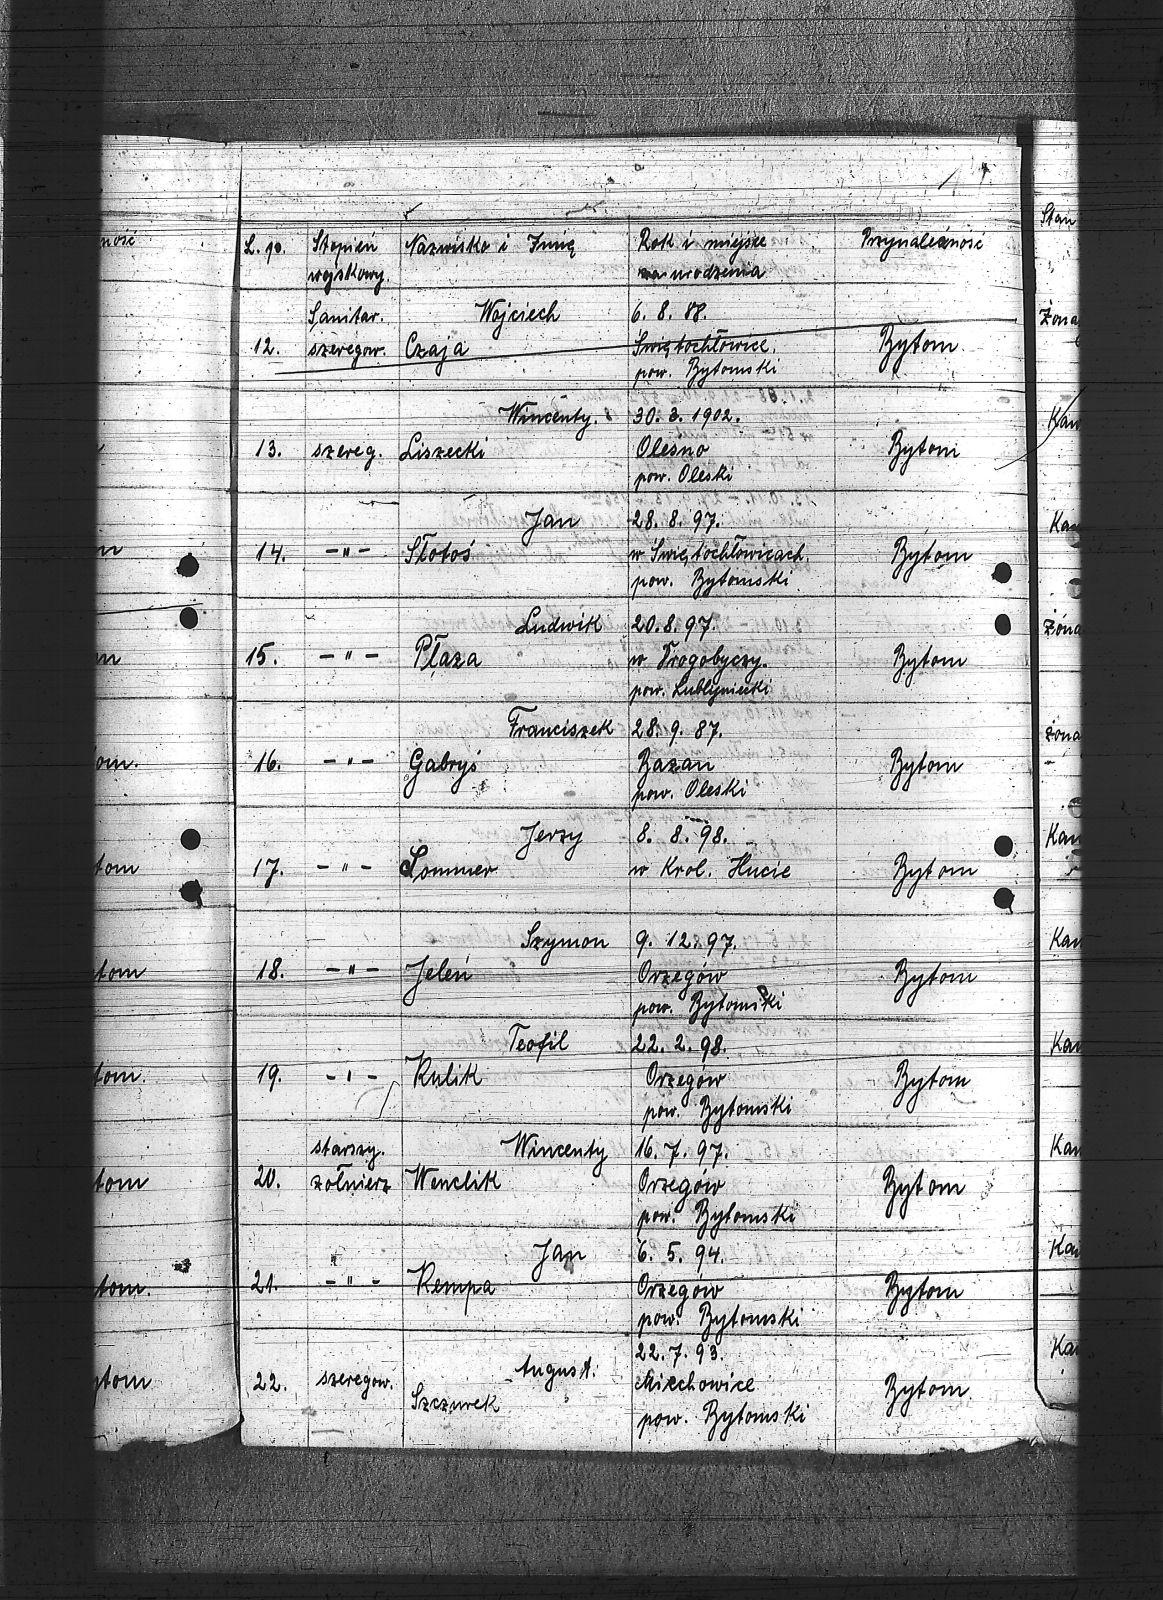 L.p. Stopień Nazwisko i Imię Rok i miejsce Przynależność
wojskowy urodzenia
Sanitar. Wojciech 6. 8. 88.
12. szeregow. Czaja Świętochłowice. Bytom
pow. Bytomski
Wincenty. 30. 3. 1902.
13. szereg. Liszecki Olesno Bytom
pow. Oleski
Jan 28. 8. 97.
14. -"- Słotoś w Świętochłowicach. Bytom
pow. Bytomski
Ludwik 20. 8. 97.
15. -"- Płaza w Drogobyczy. Bytom
pow. Lubliniecki
Franciszek 28. 9. 87.
16. -"- Gabryś Bazan Bytom
pow. Oleski
Jerzy 8. 8. 98.
17. -"- Sommer w Krol. Hucie Bytom
Szymon 9. 12. 97.
18. -"- Jeleń Orzegów Bytom
pow. Bytomski
Teofil 22. 2. 98.
19. -"- Kulik Orzegów Bytom
pow. Bytomski
starszy. Wincenty 16. 7. 97.
20. żołnierz Wenclik Orzegów Bytom
pow. Bytomski
Jan 6. 5. 94.
21. -"- Kempa Orzegów Bytom
pow. Bytomski
22. 7. 93.
22. szeregow. August. Miechowice Bytom
Szczurek pow. Bytomski
Stan
Żona
Żona
żona